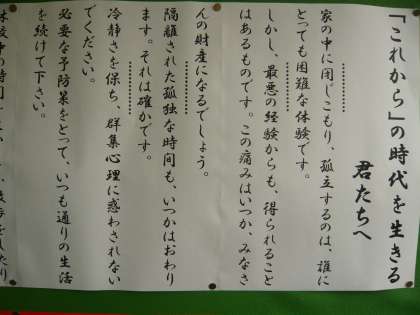 「これから」の時代を生きる
君たちへ
家の中に閉じこもり、孤立するのは、誰に
とっても困難な体験です。
しかし、最悪の経験からも、得られること
はあるものです。この痛みはいつか、みなさ
んの財産になるでしょう。
隔離された孤独な時間も、いつかはおわり
ます。それは確かです。
冷静さを保ち、群集心理に惑わされない
でください。
必要な予防策をとって、いつも通りの生活
を続けて下さい。